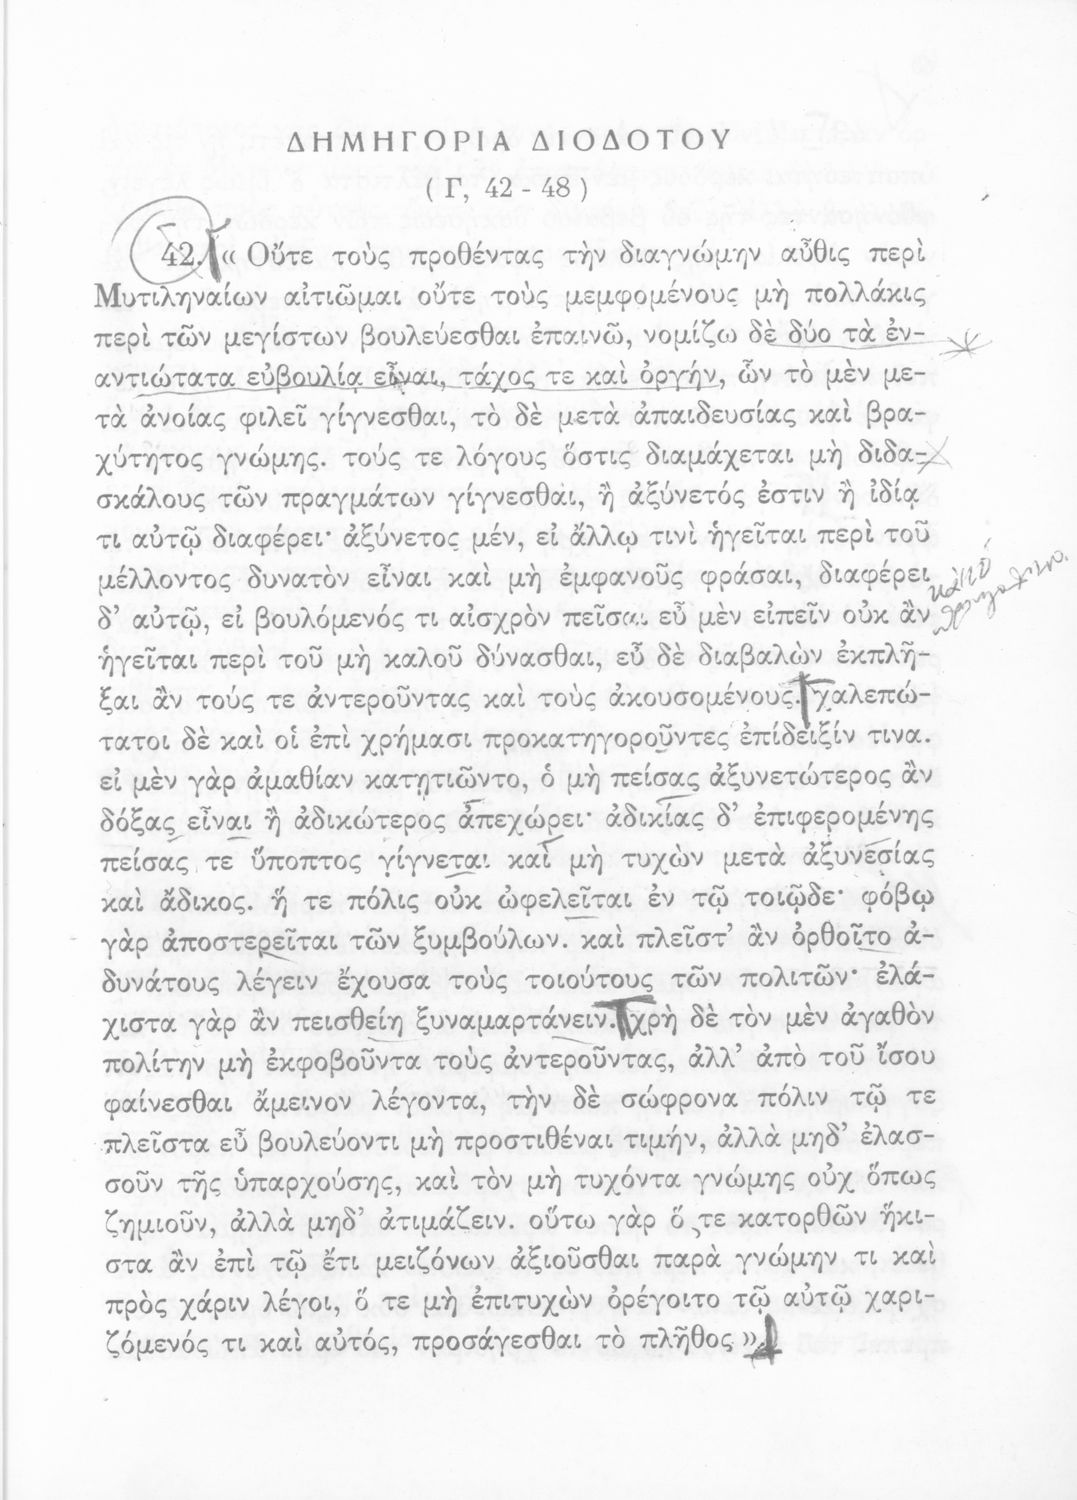 ΔΗΜΗΓΟΡΙΑ ΔΙΟΔΟΤΟΥ
(Γ, 42 - 48)
42. « Οὔτε τοὺς προθέντας τὴν διαγνώμην αὖθις περὶ
Μυτιληναίων αἰτιῶμαι οὔτε τοὺς μεμφομένους μὴ πολλάκις
περὶ τῶν μεγίστων βουλεύεσθαι ἐπαινῶ, νομίζω δὲ δύο τὰ ἐν-
αντιώτατα εὐβουλίᾳ εἶναι, τάχος τε καὶ ὀργήν, ὧν τὸ μὲν με-
τὰ ἀνοίας φιλεῖ γίγνεσθαι, τὸ δὲ μετὰ ἀπαιδευσίας καὶ βρα-
χύτητος γνώμης. τούς τε λόγους ὅστις διαμάχεται μὴ διδα-
σκάλους τῶν πραγμάτων γίγνεσθαι, ἢ ἀξύνετός ἐστιν ἢ ἰδίᾳ
τι αὐτῷ διαφέρει· ἀξύνετος μέν, εἰ ἄλλῳ τινὶ ἡγεῖται περὶ τοῦ
μέλλοντος δυνατὸν εἶναι καὶ μὴ ἐμφανοῦς φράσαι, διαφέρει
δ' αὐτῷ, εἰ βουλόμενός τι αἰσχρὸν πεῖσαι εὖ μὲν εἰπεῖν οὐκ ἂν
ἡγεῖται περὶ τοῦ μὴ καλοῦ δύνασθαι, εὖ δὲ διαβαλὼν ἐκπλῆ-
ξαι ἂν τούς τε ἀντεροῦντας καὶ τοὺς ἀκουσομένους. χαλεπώ-
τατοι δὲ καὶ οἱ ἐπὶ χρήμασι προκατηγοροῦντες ἐπίδειξίν τινα.
εἰ μὲν γὰρ ἀμαθίαν κατῃτιῶντο, ὁ μὴ πείσας ἀξυνετώτερος ἂν
δόξας εἶναι ἢ ἀδικώτερος ἀπεχώρει· ἀδικίας δ' ἐπιφερομένης
πείσας τε ὕποπτος γίγνεται καὶ μὴ τυχὼν μετὰ ἀξυνεσίας
καὶ ἄδικος. ἥ τε πόλις οὐκ ὠφελεῖται ἐν τῷ τοιῷδε· φόβῳ
γὰρ ἀποστερεῖται τῶν ξυμβούλων. καὶ πλεῖστ' ἂν ὀρθοῖτο ἀ-
δυνάτους λέγειν ἔχουσα τοὺς τοιούτους τῶν πολιτῶν· ἐλά-
χιστα γὰρ ἂν πεισθείη ξυναμαρτάνειν. χρὴ δὲ τὸν μὲν ἀγαθὸν
πολίτην μὴ ἐκφοβοῦντα τοὺς ἀντεροῦντας, ἀλλ' ἀπὸ τοῦ ἴσου
φαίνεσθαι ἄμεινον λέγοντα, τὴν δὲ σώφρονα πόλιν τῷ τε
πλεῖστα εὖ βουλεύοντι μὴ προστιθέναι τιμήν, ἀλλὰ μηδ' ἐλασ-
σοῦν τῆς ὑπαρχούσης, καὶ τὸν μὴ τυχόντα γνώμης οὐχ ὅπως
ζημιοῦν, ἀλλὰ μηδ' ἀτιμάζειν. οὕτω γὰρ ὅ τε κατορθῶν ἥκι-
στα ἂν ἐπὶ τῷ ἔτι μειζόνων ἀξιοῦσθαι παρὰ γνώμην τι καὶ
πρὸς χάριν λέγοι, ὅ τε μὴ ἐπιτυχὼν ὀρέγοιτο τῷ αὐτῷ χαρι-
ζόμενός τι καὶ αὐτός, προσάγεσθαι τὸ πλῆθος ».